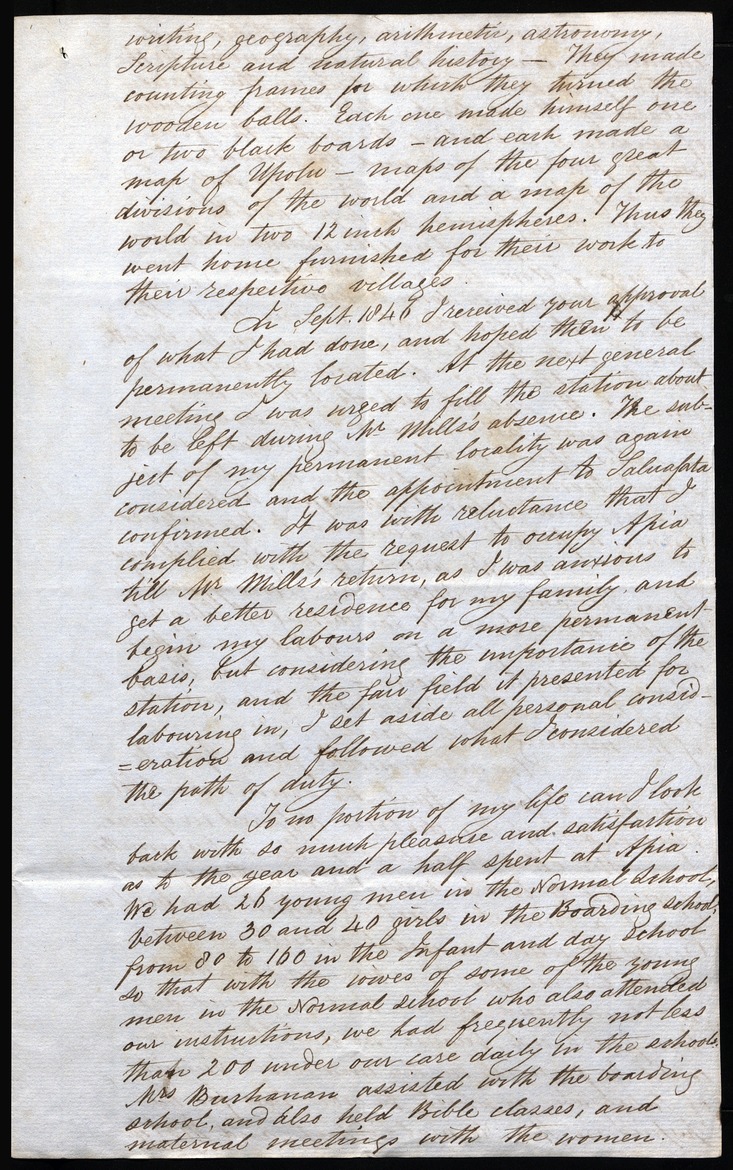 writing, geography, arithmetic, astronomy,
Scripture and natural history — They made
counting frames for which they turned the
wooden balls. Each one made himself one
or two black boards – and each made a
map of Upolu – maps of the four great
divisions of the world and a map of the
world in two 12 inch hemispheres. Thus they
went home furnished for their work to
their respective villages.
In Sept. 1846 I received your approval
of what I had done, and hoped then to be
permanently located. At the next general
meeting I was urged to fill the station about
to be left during Mr Mills's absence. The sub-
ject of my permanent locality was again
considered and the appointment to Saluafata
confirmed. It was with reluctance that I
complied with the request to occupy Apia
till Mr Mills's return, as I was anxious to
get a better residence for my family, and
begin my labours on a more permanent
basis, but considering the importance of the
station, and the fair field it presented for
labouring in, I set aside all personal consid-
=eration and followed what I considered
the path of duty.
To no portion of my life can I look
back with so much pleasure and satisfaction
as to the year and a half spent at Apia.
We had 26 young men in the Normal School,
between 30 and 40 girls in the Boarding school,
from 80 to 160 in the Infant and day School
so that with the wives of some of the young
men in the Normal School who also attended
our instructions, we had frequently not less
than 200 under our care daily in the schools.
Mrs Buchanan assisted with the boarding
school, and also held Bible classes, and
maternal meetings with the women.